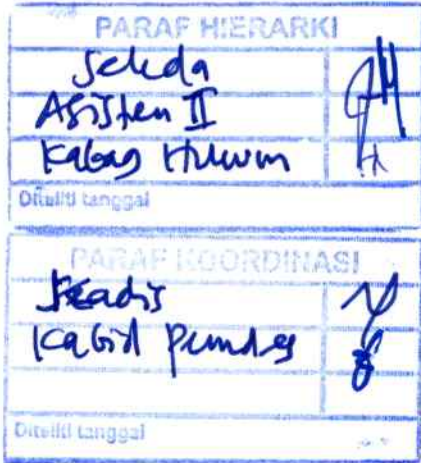 PARAF HIERARKI
Sekda
Asisten II
Kabag Hukum
Diteliti tanggal
PARAF KOORDINASI
Kadis
Kabid Pemdes
Diteliti tanggal